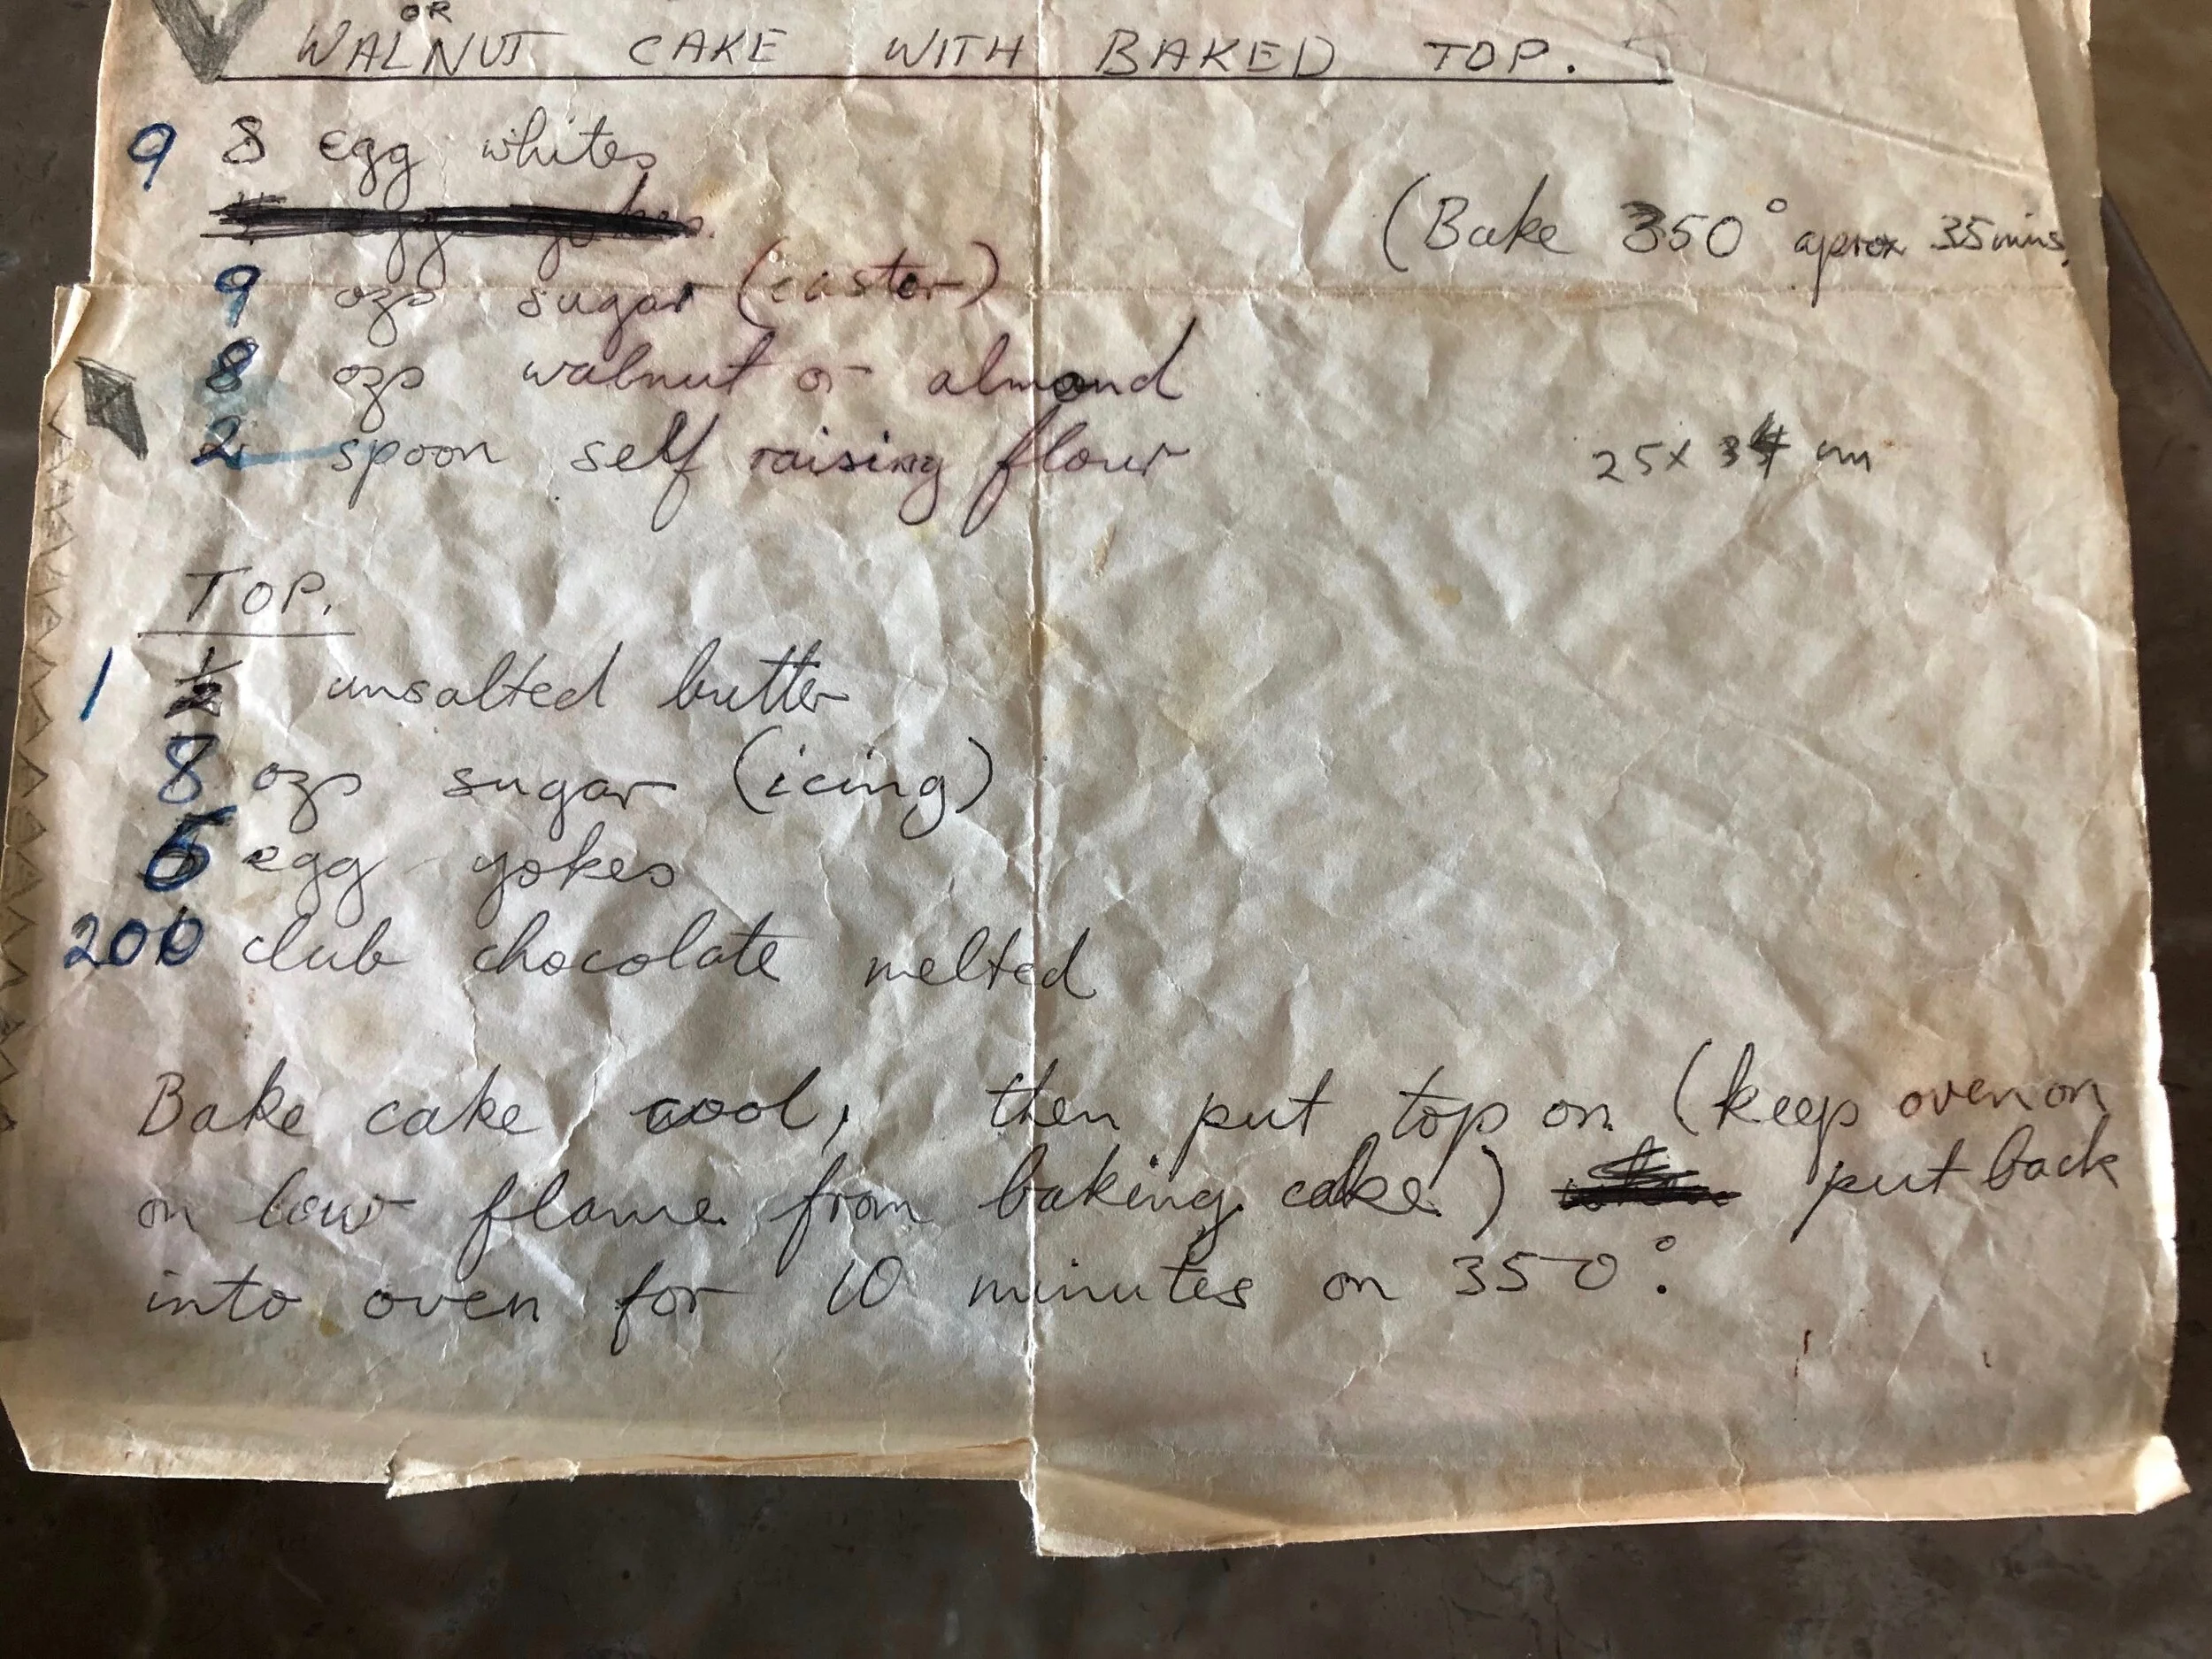 OR
WALNUT CAKE WITH BAKED TOP.
9 8 egg whites
(Bake 350° aprox 35 mins.
9 ozs sugar (castor)
8 ozs walnut or almond
2 spoon self raising flour
25 x 34 cm
TOP.
1 ½ unsalted butter
8 ozs sugar (icing)
6 egg yokes
200 club chocolate melted
Bake cake cool, then put top on (keep oven on
on low flame from baking cake) put back
into oven for 10 minutes on 350°.